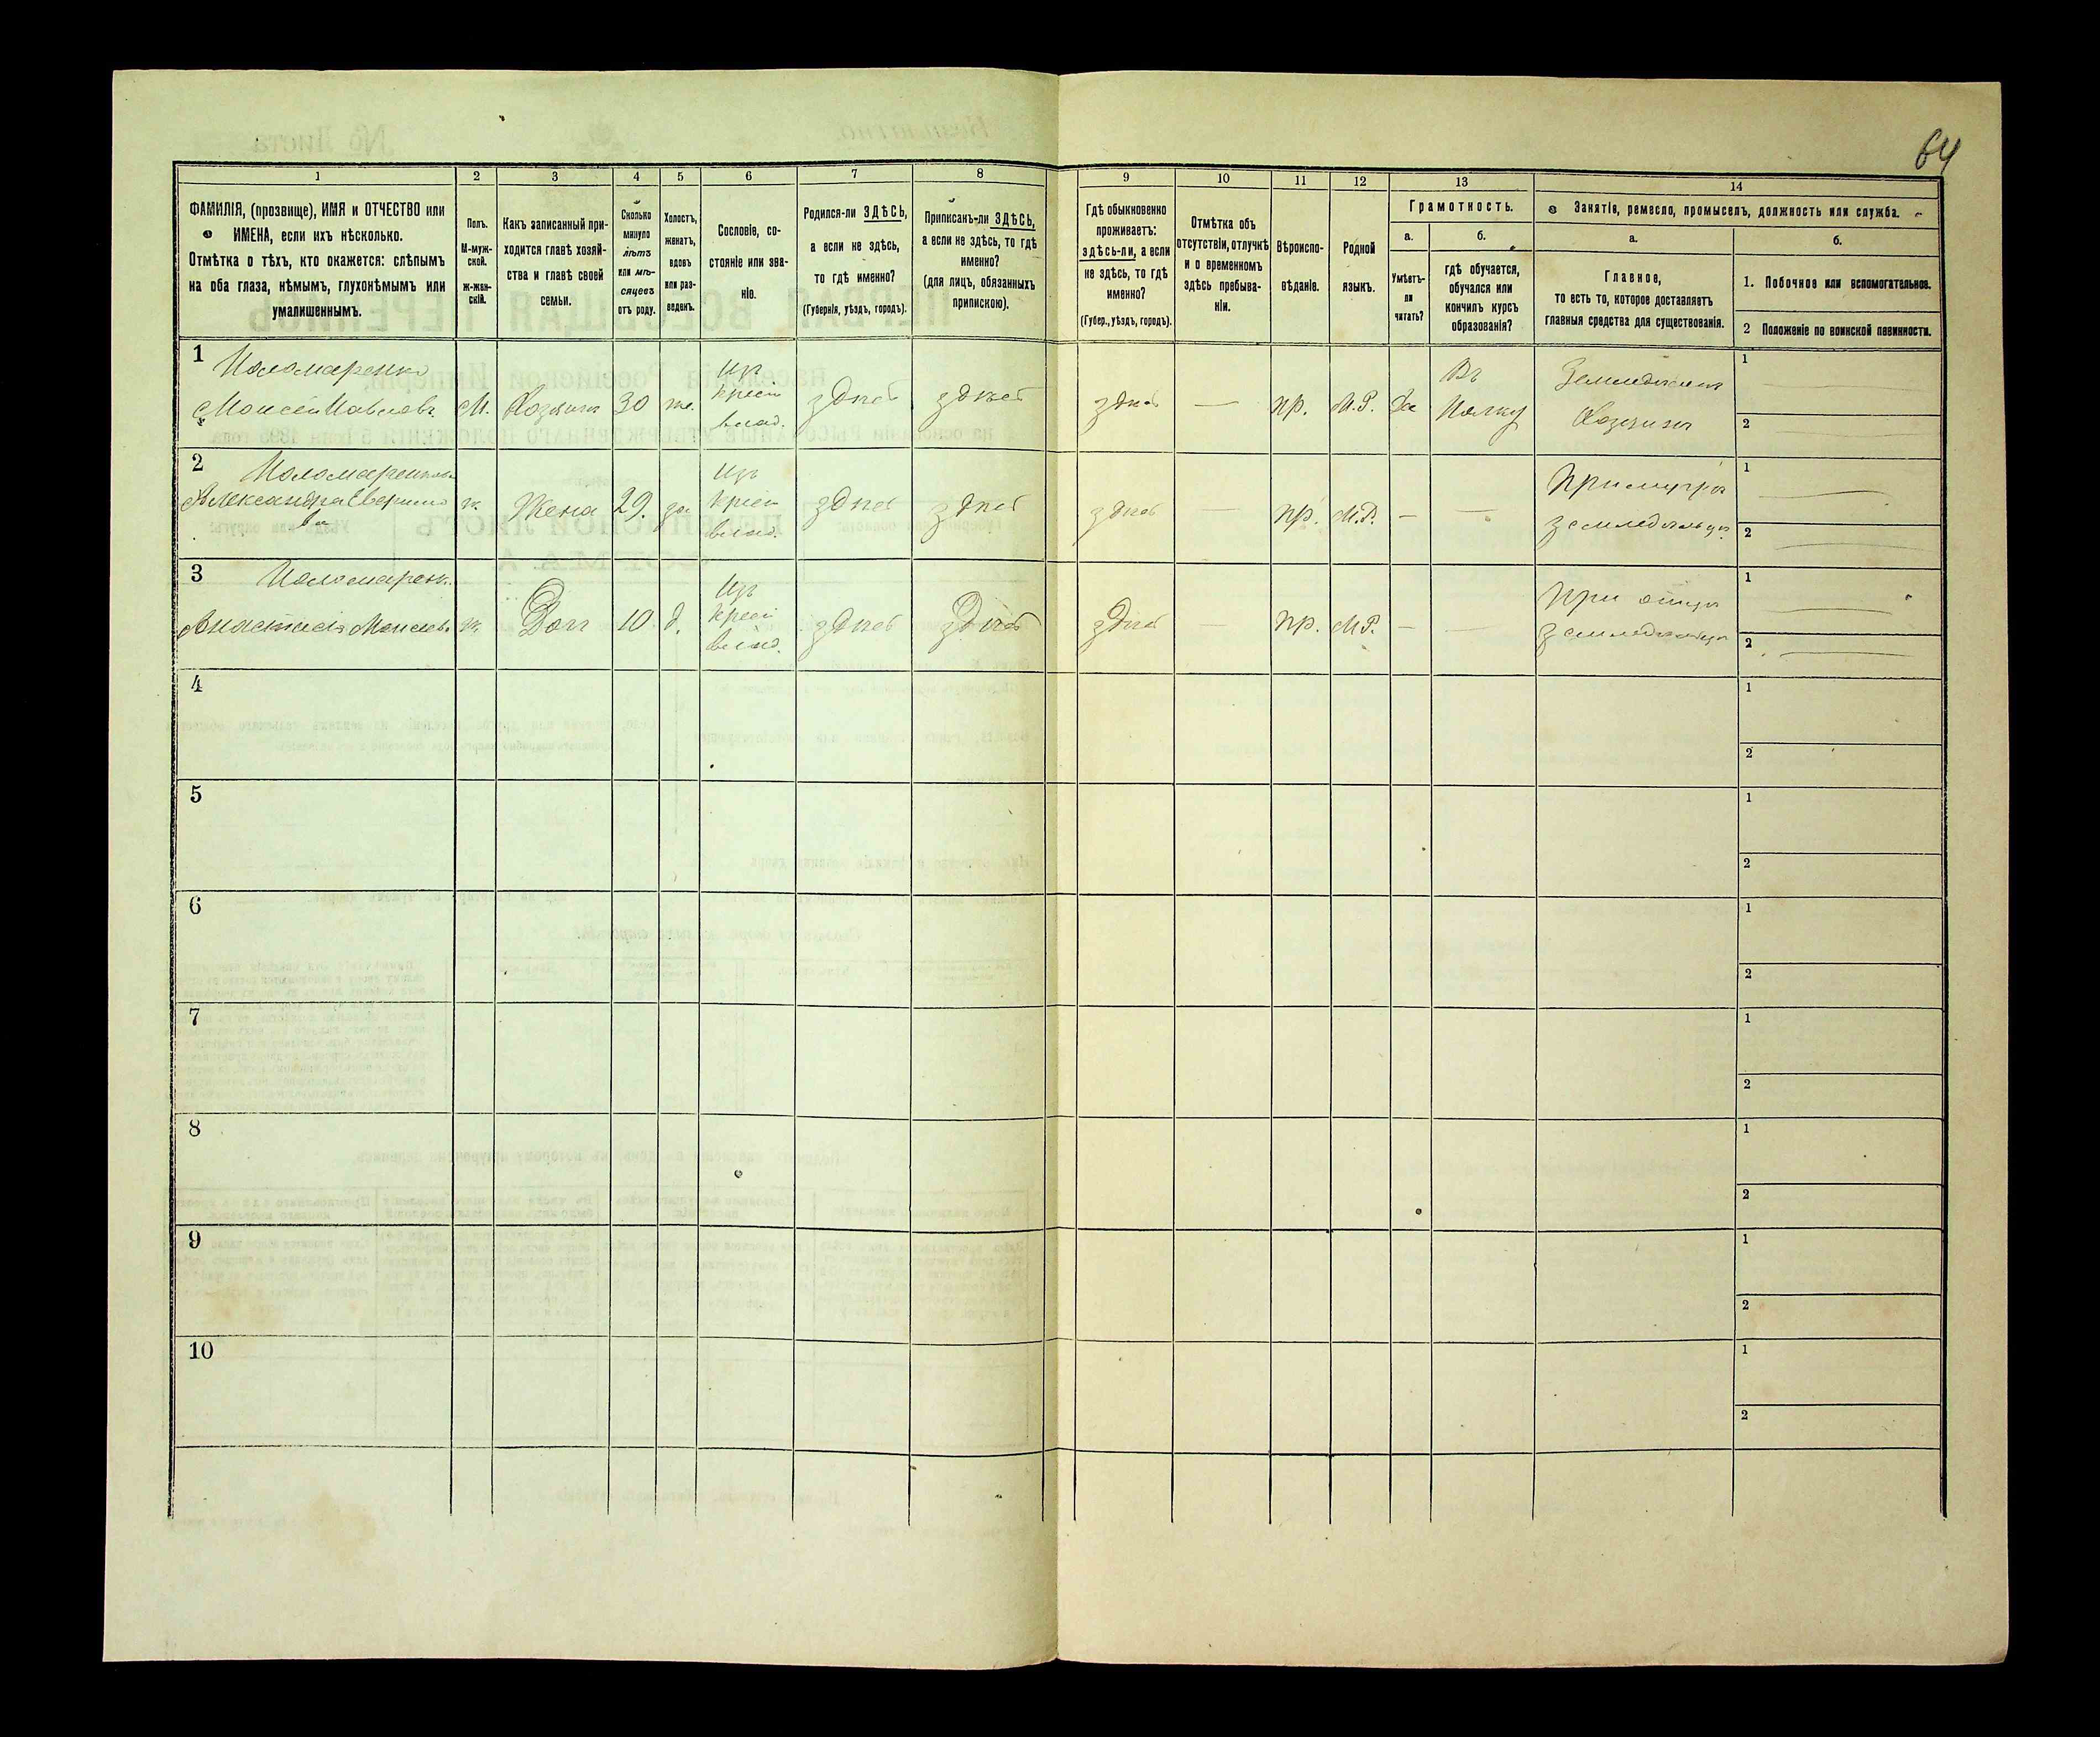 64
1
2
3
4
5
6
7
8
9
10
11
12
13
14
ФАМИЛІЯ, (прозвище), ИМЯ и ОТЧЕСТВО или
ИМЕНА, если ихъ нѣсколько.
Отмѣтка о тѣхъ, кто окажется: слѣпымъ
на оба глаза, нѣмымъ, глухонѣмымъ или
умалишеннымъ.
Полъ.
М-муж-
ской.
ж-жен-
скій.
Какъ записанный при-
ходится главѣ хозяй-
ства и главѣ своей
семьи.
Сколько
минуло
лѣтъ
или мѣ-
сяцевъ
отъ роду.
Холостъ,
женатъ,
вдовъ
или раз-
веденъ.
Сословіе, со-
стояніе или зва-
ніе.
Родился-ли ЗДѢСЬ,
а если не здѣсь,
то гдѣ именно?
(Губернія, уѣздъ, городъ).
Приписанъ-ли ЗДѢСЬ,
а если не здѣсь, то гдѣ
именно?
(для лицъ, обязанныхъ
припискою).
Гдѣ обыкновенно
проживаетъ:
здѣсь-ли, а если
не здѣсь, то гдѣ
именно?
(Губер., уѣздъ, городъ).
Отмѣтка объ
отсутствіи, отлучкѣ
и о временномъ
здѣсь пребыва-
ніи.
Вѣроиспо-
вѣданіе.
Родной
языкъ.
Грамотность.
а.
Умѣетъ-
ли
читать?
б.
гдѣ обучается,
обучался или
кончилъ курсъ
образованія?
Занятіе, ремесло, промыселъ, должность или служба.
а.
Главное,
то есть то, которое доставляетъ
главныя средства для существованія.
б.
1. Побочное или вспомогательное.
2 Положеніе по воинской повинности.
1
Паломаренко
Моисей Павловъ
М.
Хозяинъ
30
же.
Изъ
крест
влад.
здѣсь
здѣсь
здѣсь
—
пр.
М.Р.
Да
Въ
Полку
Земледѣлецъ
Хозяинъ
1
2
2
Паломаренкова
Александра
ж.
Жена
29.
за
Изъ
крест
влад.
здѣсь
здѣсь
здѣсь
—
пр.
М.Р.
—
—
При мужѣ
земледѣльцѣ
1
2
3
Паломаренк.
Анастасія Моисеева
ж.
Доч
10
д.
Изъ
крест
влад.
здѣсь
здѣсь
здѣсь
—
пр.
М.Р.
—
—
При отцѣ
земледѣльцѣ
1
2
4
1
2
5
1
2
6
1
2
7
1
2
8
1
2
9
1
2
10
1
2